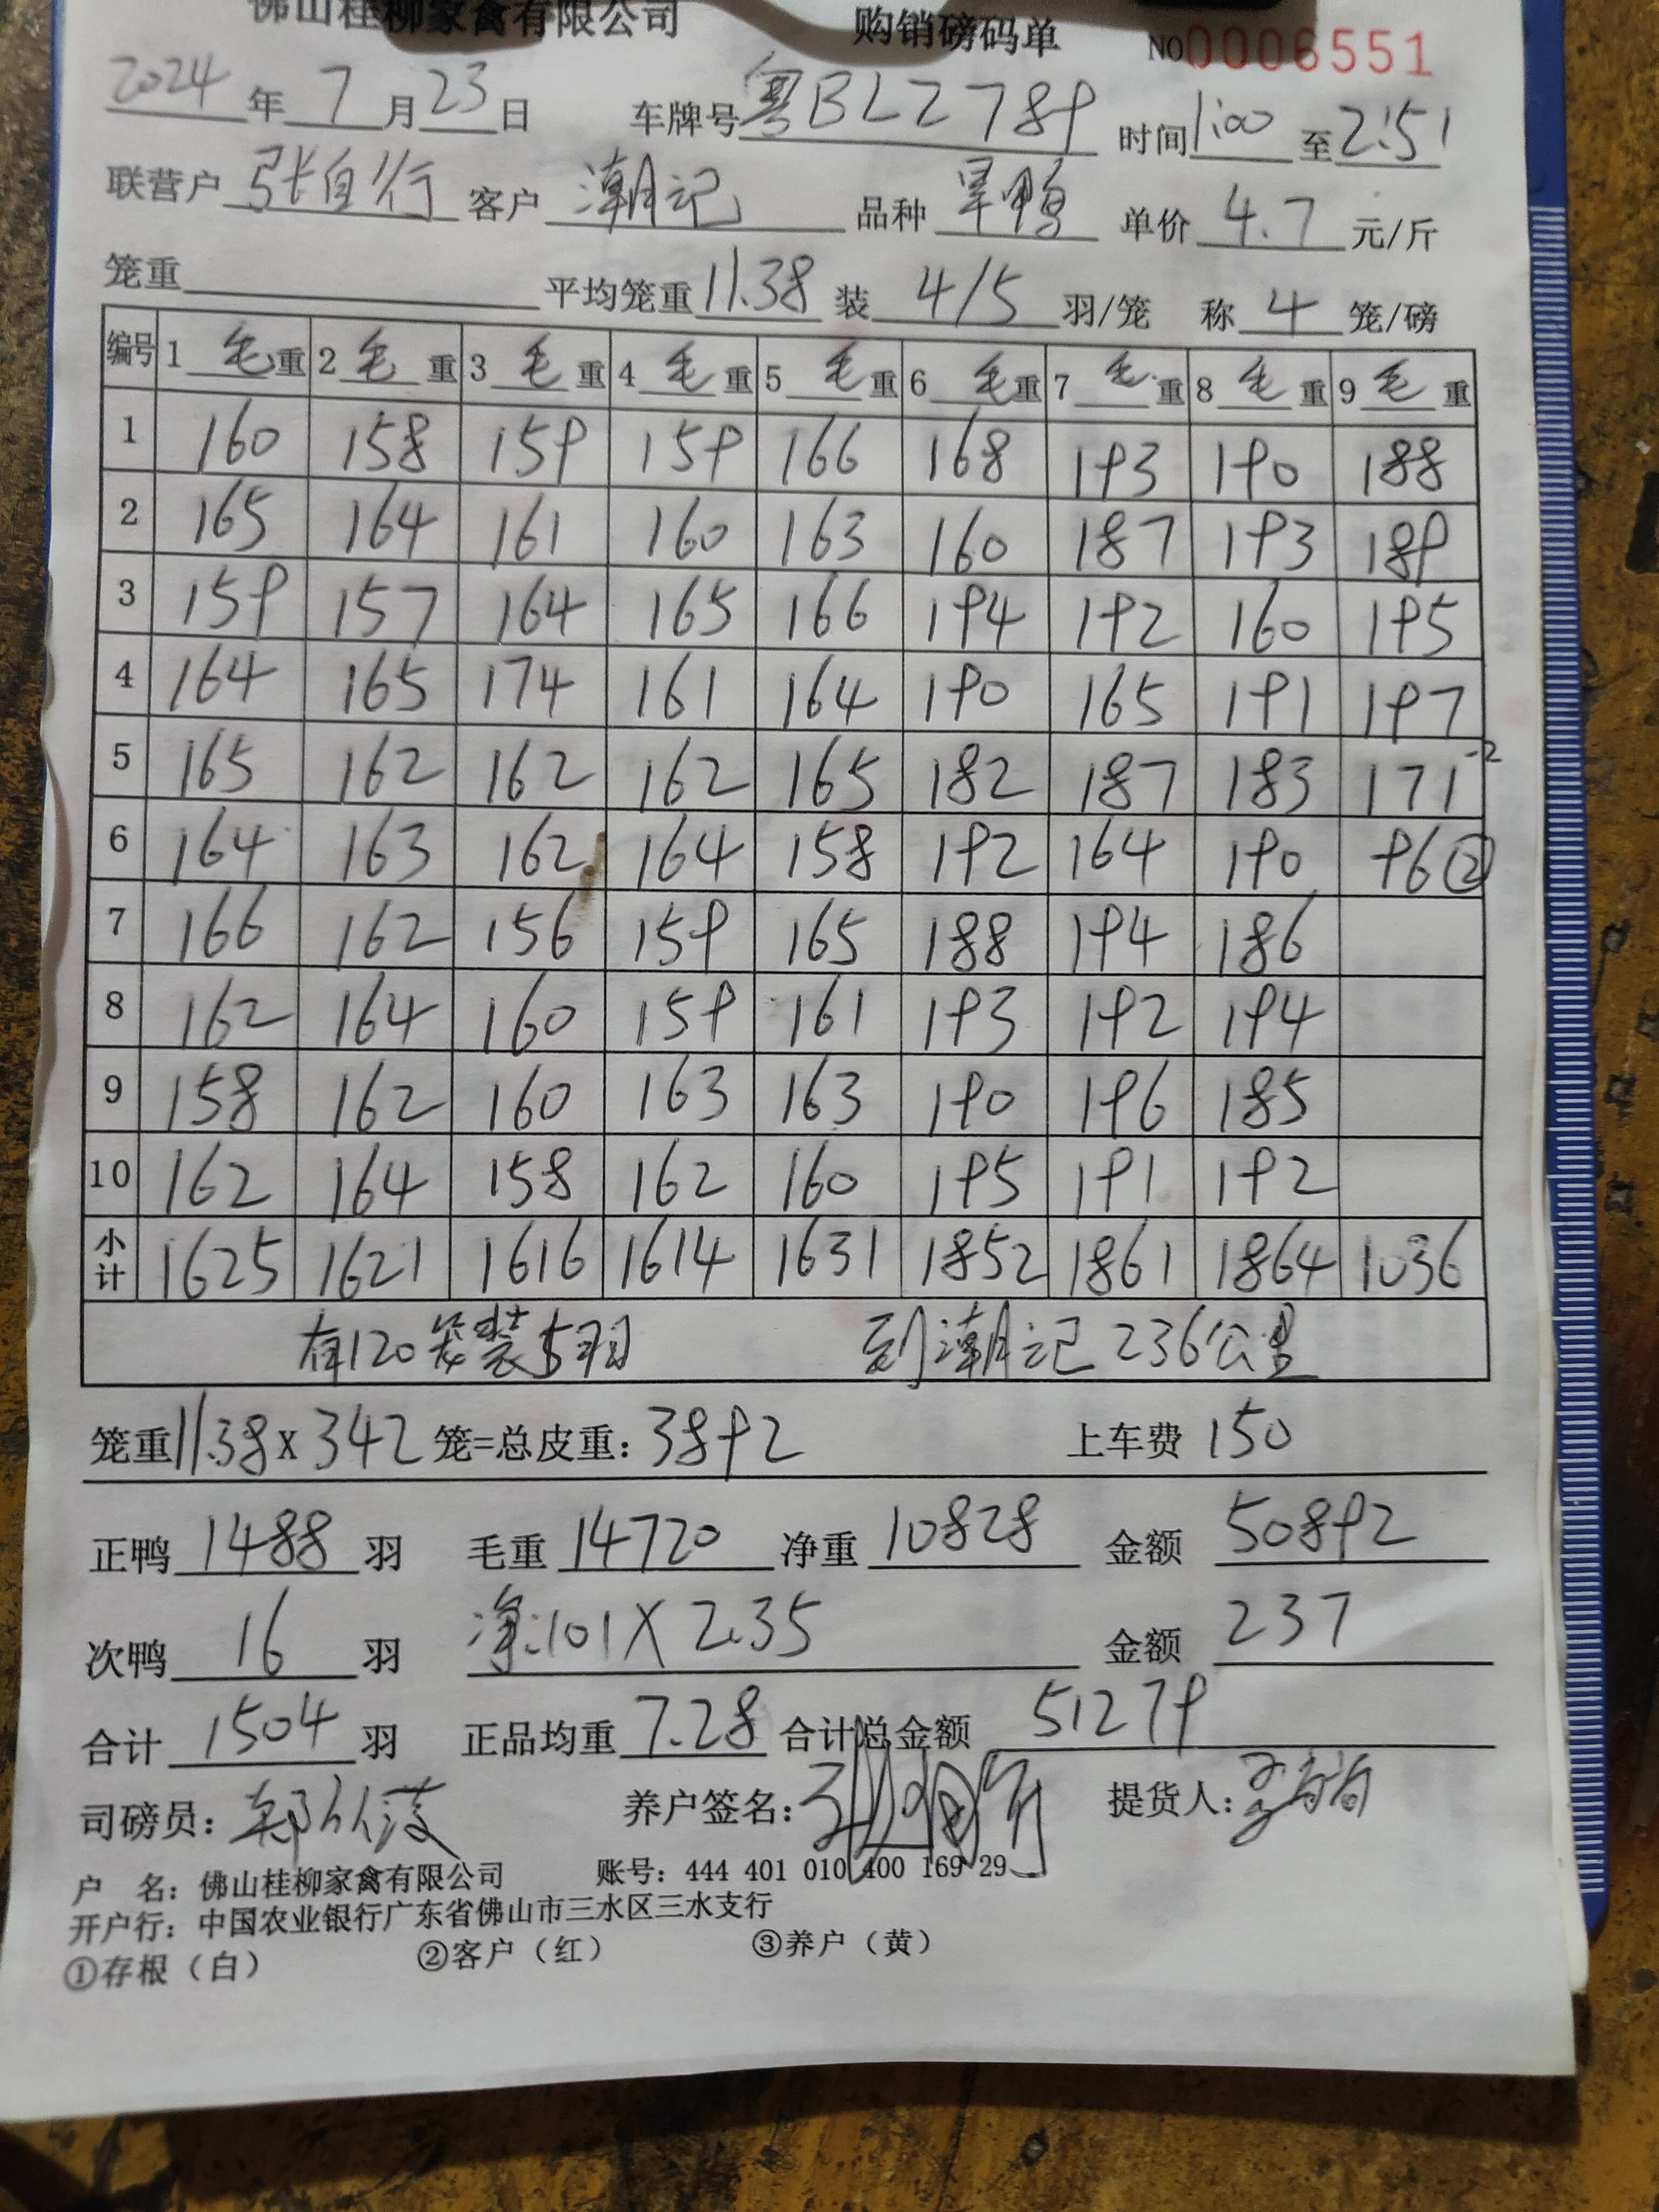 佛山桂柳家禽有限公司 购销磅码单 NO0006551
2024年7月23日 车牌号粤BLZ789 时间1:00至2:51
联营户 张自行 客户 潮记 品种 旱鸭 单价 4.7 元/斤
笼重 平均笼重11.38 装 4/5 羽/笼 称 4 笼/磅
编号 1 毛重 2 毛重 3 毛重 4 毛重 5 毛重 6 毛重 7 毛重 8 毛重 9 毛重
1 160 158 159 159 166 168 193 190 188
2 165 164 161 160 163 160 187 193 189
3 159 157 164 165 166 194 192 160 195
4 164 165 174 161 164 190 165 191 197
5 165 162 162 162 165 182 187 183 171 -2
6 164 163 162 164 158 192 164 190 96②
7 166 162 156 159 165 188 194 186
8 162 164 160 159 161 193 192 194
9 158 162 160 163 163 190 196 185
10 162 164 158 162 160 195 191 192
小计 1625 1621 1616 1614 1631 1852 1861 1864 1036
有120笼装5羽 到潮记236公里
笼重11.38x342笼=总皮重:3892 上车费 150
正鸭 1488 羽 毛重 14720 净重 10828 金额 50892
次鸭 16 羽 净:101X2.35 金额 237
合计 1504 羽 正品均重 7.28 合计总金额 51279
司磅员: 养户签名: 提货人:
户 名:佛山桂柳家禽有限公司 账号:444 401 010 400 169 29
开户行:中国农业银行广东省佛山市三水区三水支行
①存根(白) ②客户(红) ③养户(黄)